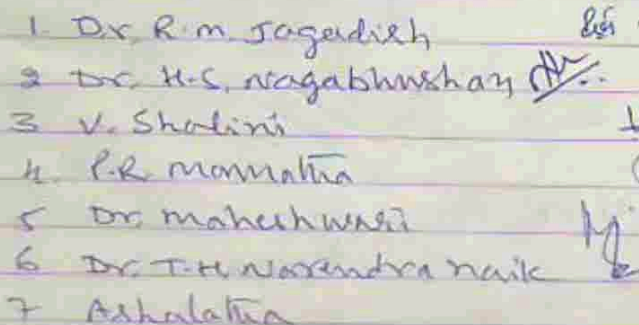 1. Dr R.m. Jagadish
2 Dr. H.S. Nagabhushan
3 V. Shalini
4. P.R. Mamatha
5 Dr. Maheshwari
6 Dr. T.H. Narendra naik
7 Ashalatha